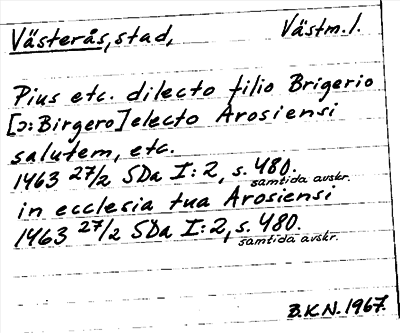 Västerås, stad, Västm. l.
Pius etc. dilecto filio Brigerio
[ɔ: Birgero] electo Arosiensi
salutem, etc.
1463 27/2 SDa I:2, s. 480.
samtida avskr.
in ecclesia tua Arosiensi
1463 27/2 SDa I:2, s. 480.
samtida avskr.
B.K.N. 1967.